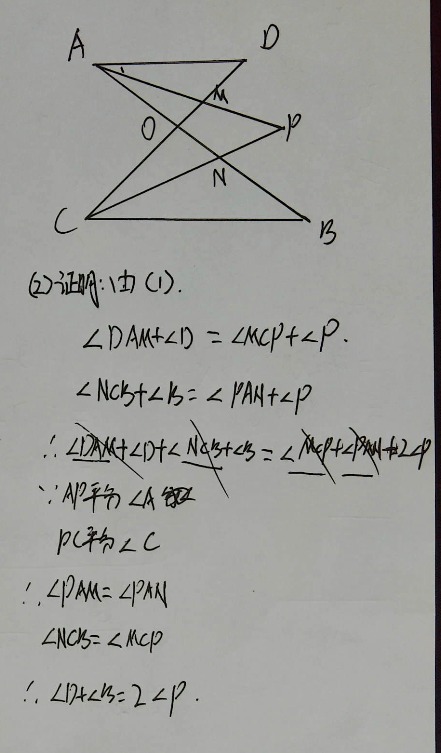 A
D
M
O
P
N
C
B
(2)证明:由(1).
∠DAM+∠D=∠MCP+∠P.
∠NCB+∠B=∠PAN+∠P
∴∠DAM+∠D+∠NCB+∠B=∠MCP+∠PAN+2∠P
∵AP平分∠A
PC平分∠C
∴∠PAM=∠PAN
∠NCB=∠MCP
∴∠D+∠B=2∠P.